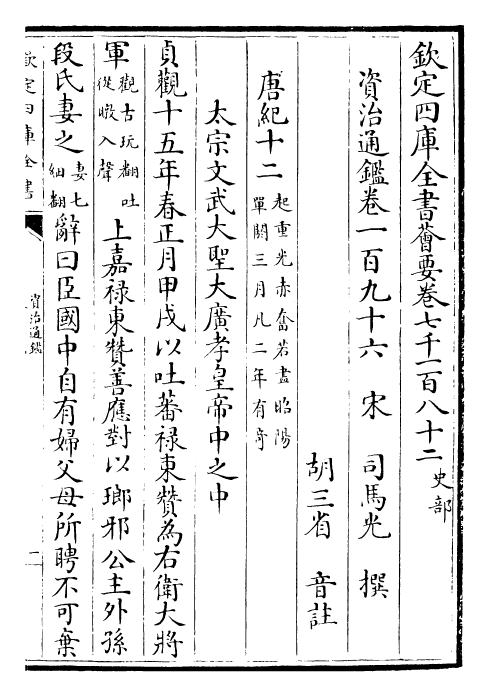 欽定四庫全書薈要卷七千一百八十二 史部
資治通鑑卷一百九十六 宋 司馬光 撰
胡三省 音註
唐紀十二 起重光赤奮若盡昭陽單閼三月凡二年有奇
太宗文武大聖大廣孝皇帝中之中
貞觀十五年春正月甲戌以吐蕃禄東贊為右衛大將
軍 觀古玩翻吐從暾入聲 上嘉禄東贊善應對以瑯邪公主外孫
段氏妻之 妻七細翻 辭曰臣國中自有婦父母所聘不可棄
欽定四庫全書
資治通鑑